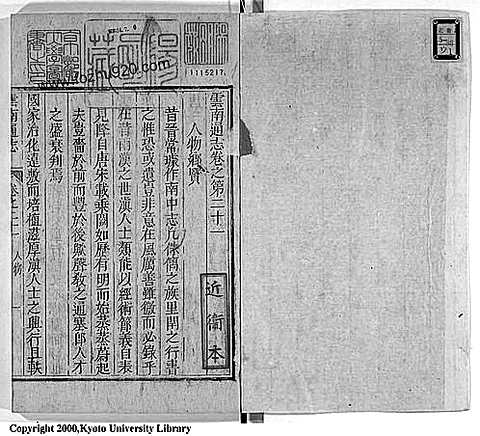 雲南通志卷之第二十一
人物 鄉賢
昔晉常璩作南中志凡條俱之族里閈之行書
之惟恐或遺豈非意在風厲善雖微而必錄乎
在昔兩漢之世滇人士類能以經術節義自表
見降自唐宋載乘闕如歷有明而始蒸蒸蔚起
夫豈嗇於前而豐於後歟聲教之通塞即人才
之盛衰判焉
國家治化遠敷而培植滋厚滇人士之興行且軼
雲南通志 卷之二十一 人物 一
近衞本
1115217
www.lozmg20.com
Copyright 2000,Kyoto University Library